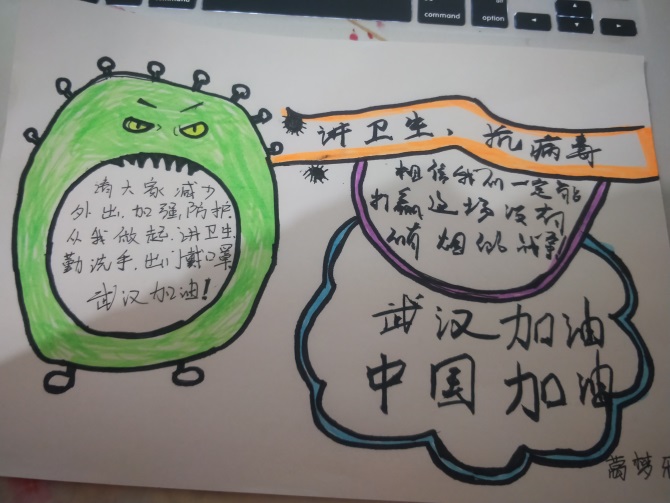 command
option
command
请大家减少
外出，加强防护
从我做起，讲卫生
勤洗手，出门戴口罩
武汉加油！
讲卫生、抗病毒
相信我们一定能
打赢这场没有
硝烟的战争
武汉加油
中国加油